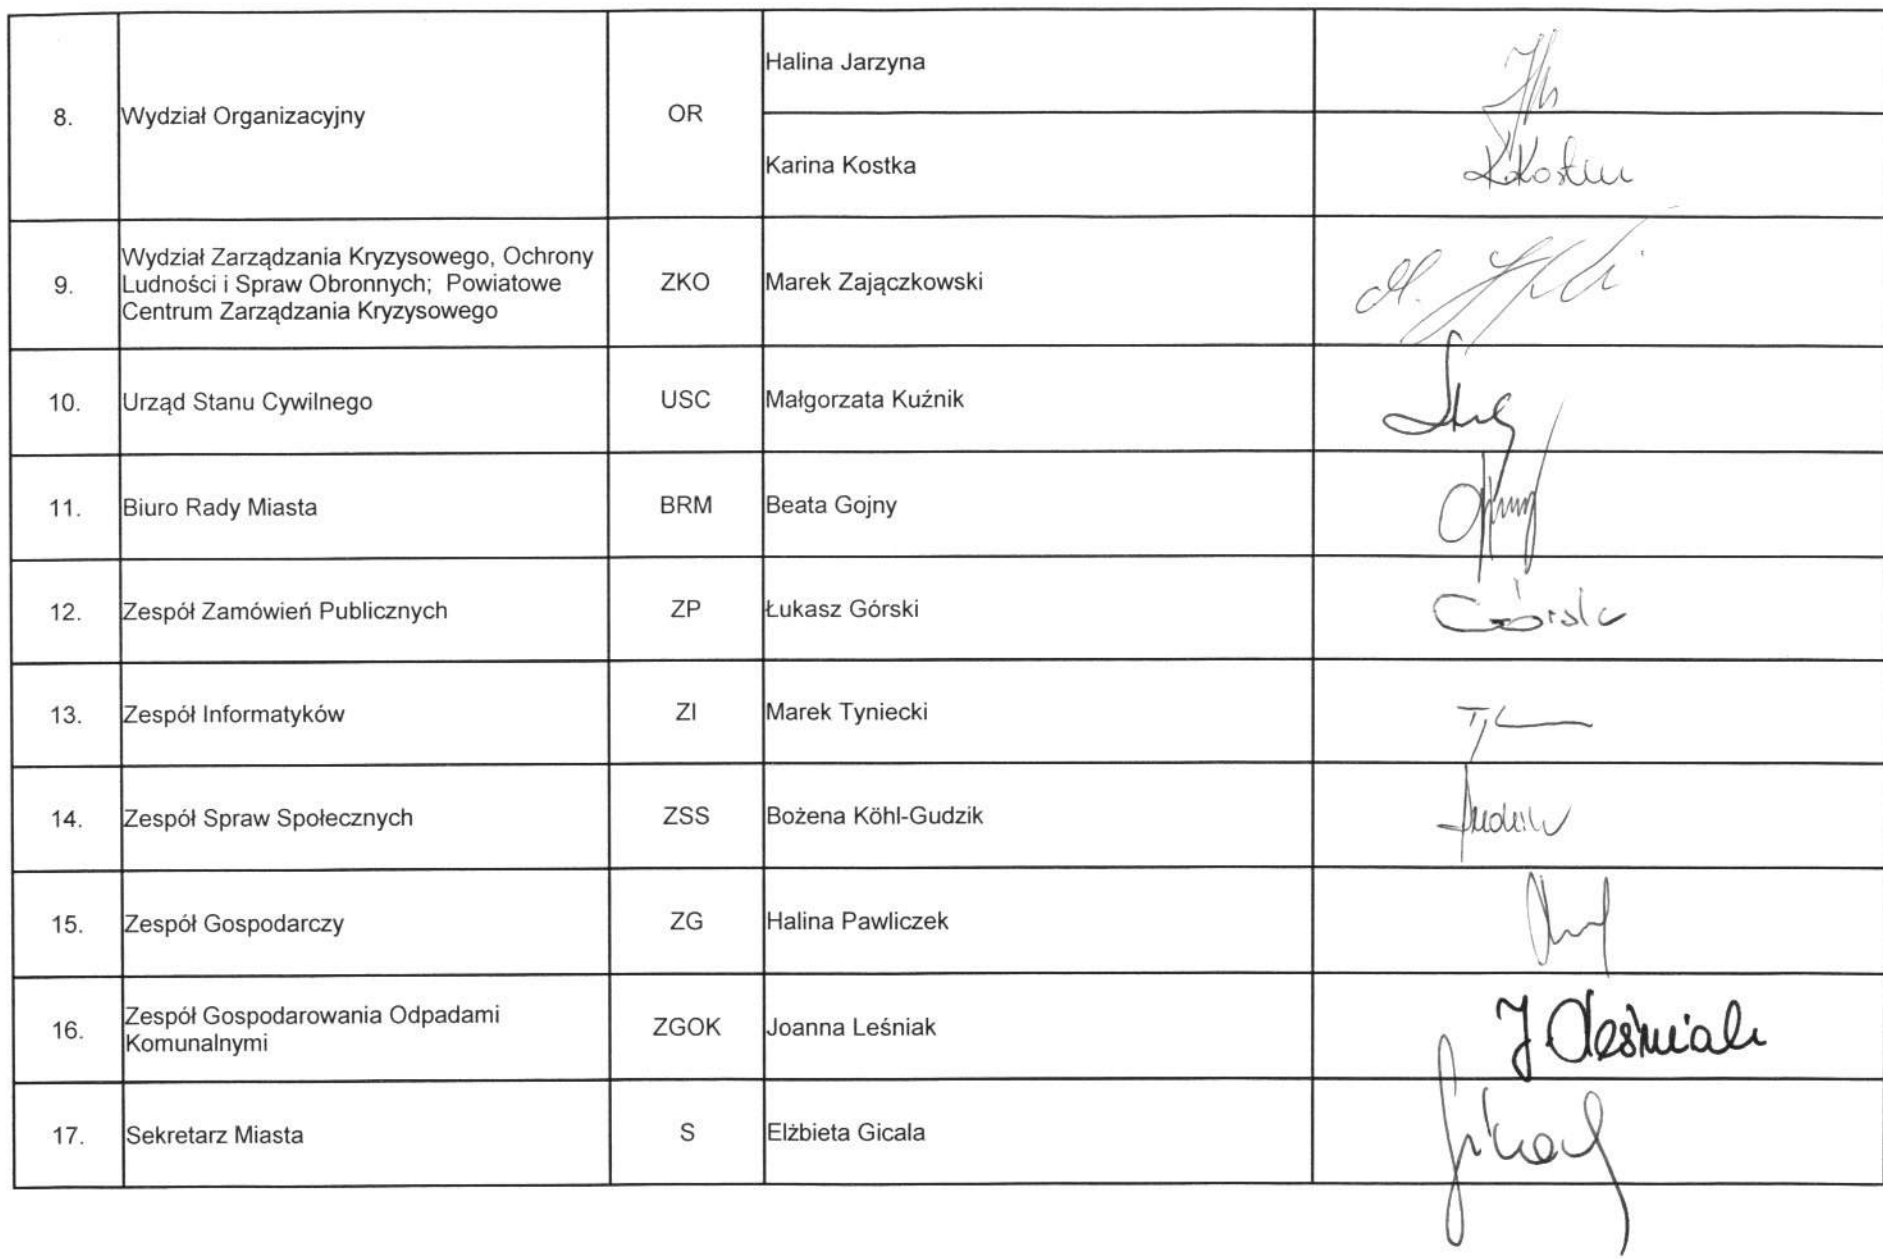 8. Wydział Organizacyjny OR Halina Jarzyna
Karina Kostka
9. Wydział Zarządzania Kryzysowego, Ochrony
Ludności i Spraw Obronnych; Powiatowe
Centrum Zarządzania Kryzysowego ZKO Marek Zajączkowski
10. Urząd Stanu Cywilnego USC Małgorzata Kuźnik
11. Biuro Rady Miasta BRM Beata Gojny
12. Zespół Zamówień Publicznych ZP Łukasz Górski
13. Zespół Informatyków ZI Marek Tyniecki
14. Zespół Spraw Społecznych ZSS Bożena Köhl-Gudzik
15. Zespół Gospodarczy ZG Halina Pawliczek
16. Zespół Gospodarowania Odpadami
Komunalnymi ZGOK Joanna Leśniak J Leśniak
17. Sekretarz Miasta S Elżbieta Gicala